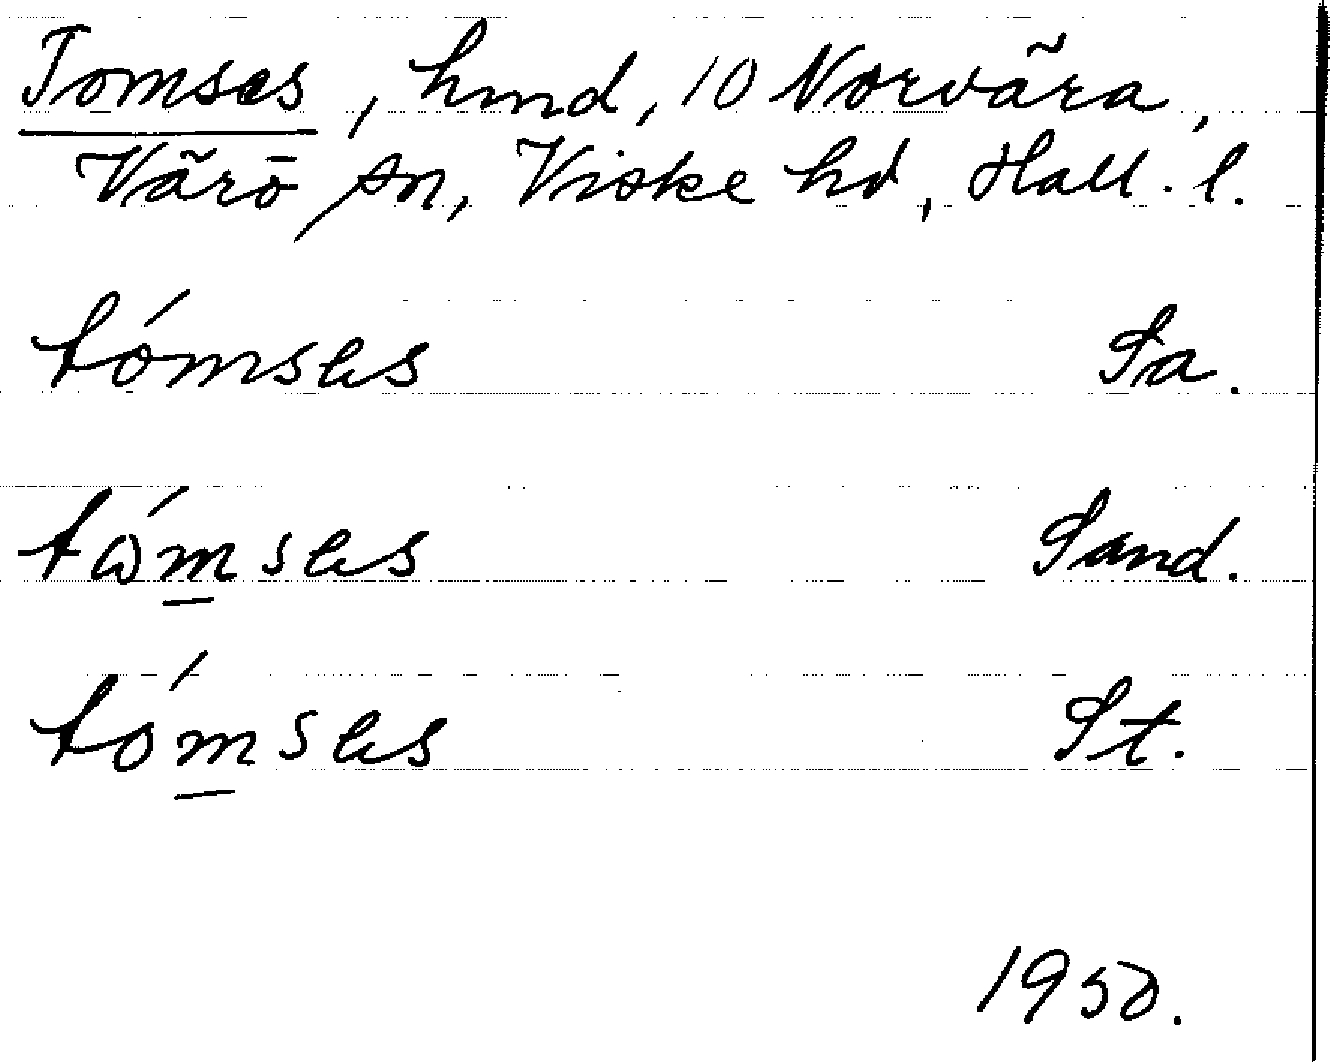 Tomses, hmd, 10 Norvära,
Värö sn, Viske hd, Hall. l.
tómses Sa.
tómses Sand.
tómses St.
1950.